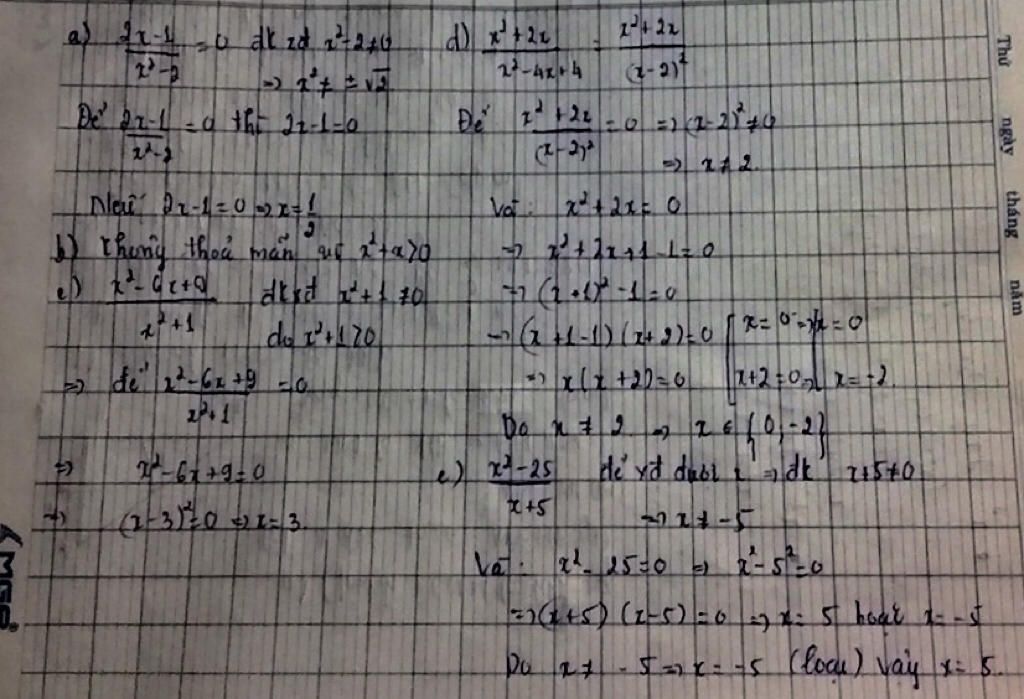 a) \frac{2x-1}{x²-2} = 0 đkxđ x²-2≠0
=> x² ≠ ±√2
Để \frac{2x-1}{x²-2} = 0 thì 2x-1=0
2x-1=0 => x=\frac{1}{2}
b) không thoả mãn
x²+1
đkxđ x²+1 ≠0
do x²+1>0
=> để \frac{x²-6x+9}{x²+1} = 0
=> x²-6x+9=0
=> (x-3)²=0 => x=3
d) \frac{x²+2x}{x²-4x+4} = \frac{x²+2x}{(x-2)²}
Để \frac{x²+2x}{(x-2)²} = 0 => (x-2)²≠0
=> x≠2
Và: x²+2x=0
=> x²+2x+1-1=0
=> (x+1)²-1=0
=> (x+1-1)(x+2)=0 [ x=0 => [ x=0
=> x(x+2)=0 [ x+2=0 => [ x=-2
Do x≠2 => x ∈ {0,-2}
e) \frac{x²-25}{x+5} để xđ x => đk x+5≠0
=> x≠-5
Và: x²-25=0 => x²-5²=0
=> (x+5)(x-5)=0 => x=5 hoặc x=-5
Do x≠-5 => x=-5 (loại) vậy x=5.
Thứ ngày tháng năm